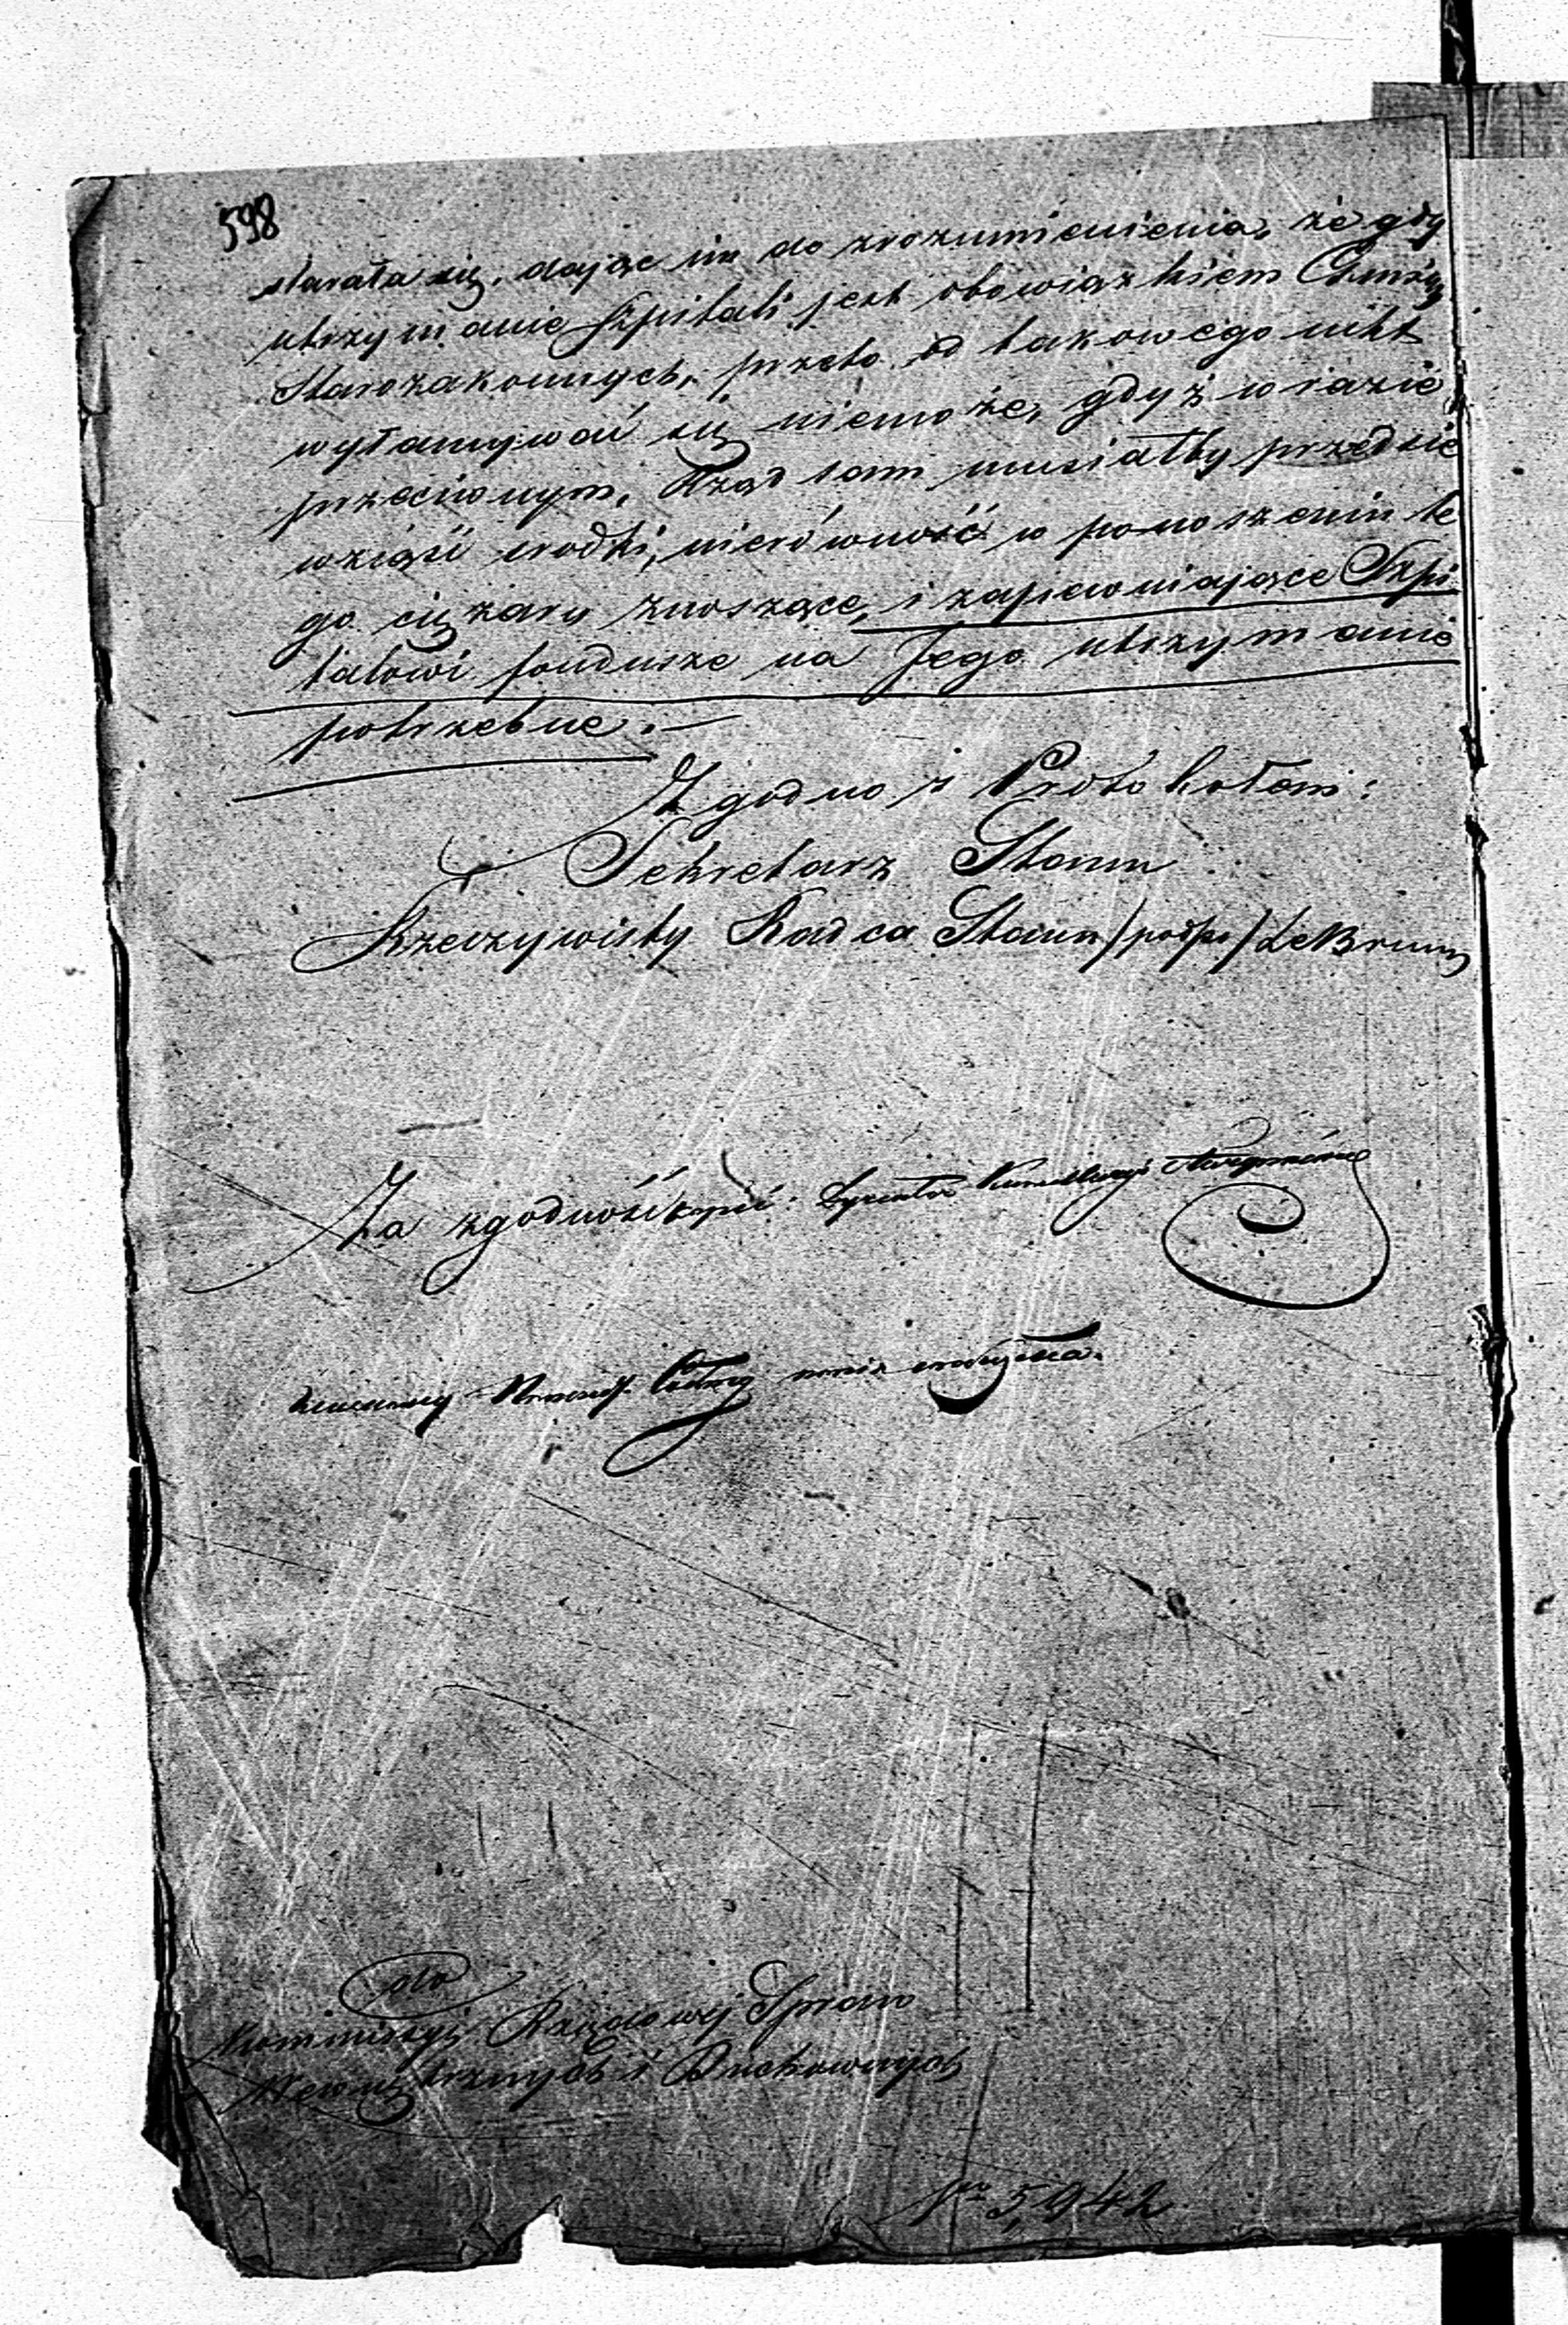 598
starała się, dając im do zrozumienia, że gdy
utrzymanie Szpitali jest obowiązkiem Gminy
Starozakonnych, przeto od takowego nikt
wyłamywać się niemoże, gdyż w razie
przeciwnym, Rząd sam musiałby przedsię
wziąść srodki, nierówność w ponoszeniu te
go ciężaru znoszące, i zapewniające Szpi
talowi fundusze na Jego utrzymanie
potrzebne.—
Zgodno z Protokołem:
Sekretarz Stanu
Rzeczywisty Radca Stanu /podps/ LeBrun
Za zgodność kopii:
dto
Kommissyi Rządowej Spraw
Wewnętrznych i Duchownych
Nro 5,942